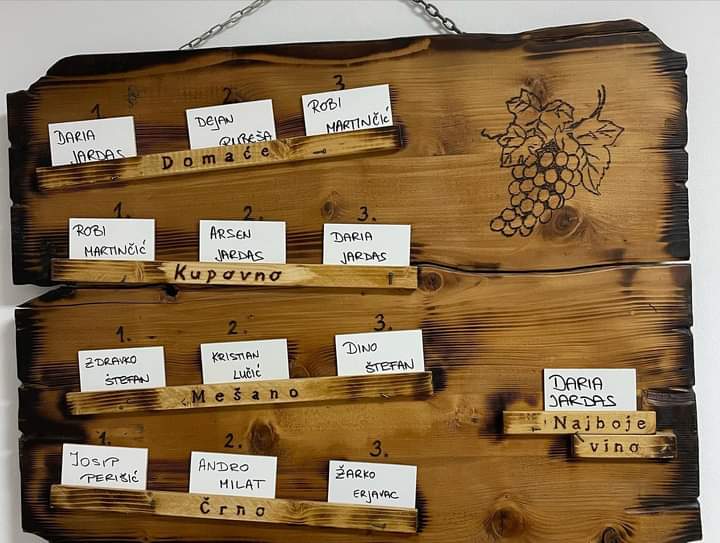 1. 2. 3
DARIA JARDAS
DEJAN RUBEŠA
ROBI MARTINČIĆ
Domaće
1. 2. 3.
ROBI MARTINČIĆ
ARSEN JARDAS
DARIA JARDAS
Kupovno
1. 2. 3.
ZDRAVKO ŠTEFAN
KRISTIAN LUČIĆ
DINO ŠTEFAN
Mešano
DARIA
JARDAS
Najboje
vino
1. 2. 3.
JOSIP PERIŠIĆ
ANDRO MILAT
ŽARKO ERJAVAC
Črno